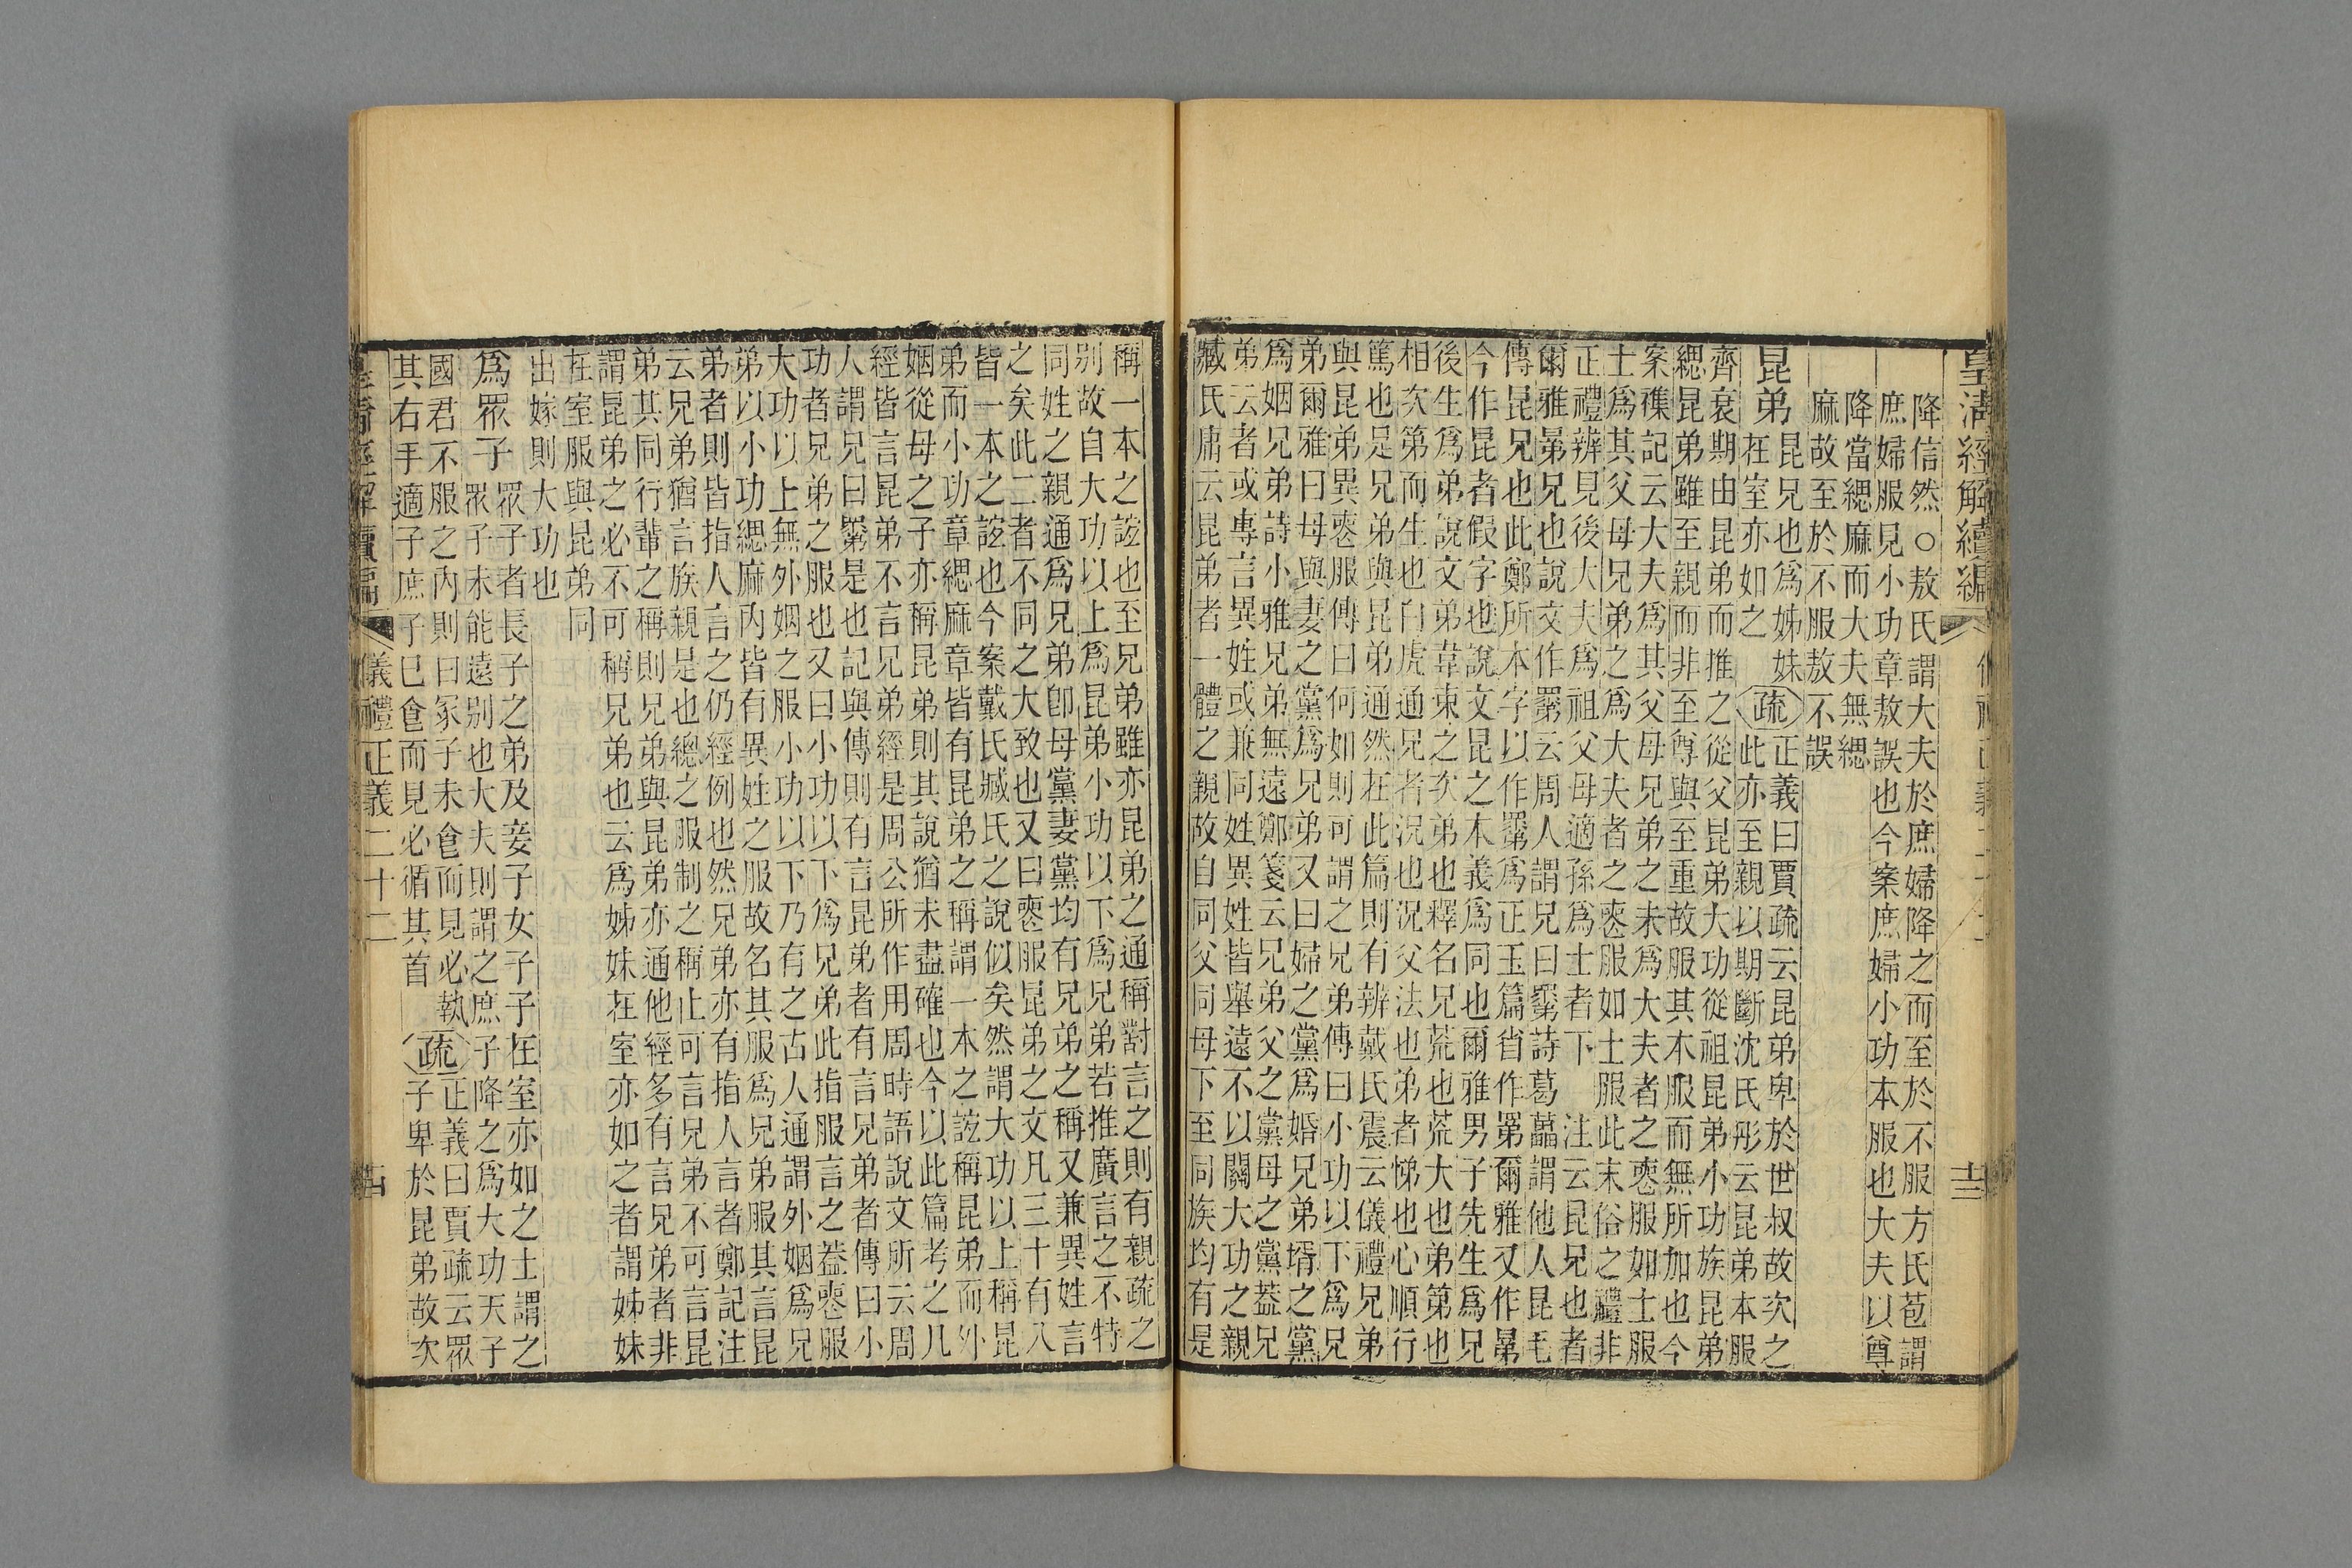 皇清經解續編 儀禮正義二十二 十三
降信然○敖氏謂大夫於庶婦降之而至於不服方氏苞謂
庶婦服見小功章敖誤也今案庶婦小功本服也大夫以尊
降當緦麻而大夫無緦
麻故至於不服敖不誤
昆弟 昆兄也爲姊妹
在室亦如之 疏 正義曰賈疏云昆弟卑於世叔故次之
此亦至親以期斷沈氏彤云昆弟本服
齊衰期由昆弟而推之從父昆弟大功從祖昆弟小功族昆弟
緦昆弟雖至親而非至尊與至重故服其本服而無所加也今
案襍記云大夫爲其父母兄弟之未爲大夫者之喪服如士服
士爲其父母兄弟之爲大夫者之喪服如士服此末俗之禮非
正禮辨見後大夫爲祖父母適孫爲士者下 注云昆兄也者
爾雅晜兄也說文作𥊽云周人謂兄曰𥊽詩葛藟謂他人昆毛
傳昆兄也此鄭所本字以作𥊽爲正玉篇省作𦊁爾雅又作晜
今作昆者假字也說文昆之本義爲同也爾雅男子先生爲兄
後生爲弟說文弟韋束之次弟也釋名兄荒也荒大也弟第也
相次第而生也白虎通兄者況也況父法也弟者悌也心順行
篤也是兄弟與昆弟通然在此篇則有辨戴氏震云儀禮兄弟
與昆弟異喪服傳曰何如則可謂之兄弟傳曰小功以下爲兄
弟爾雅曰母與妻之黨爲兄弟又曰婦之黨爲婚兄弟壻之黨
爲姻兄弟詩小雅兄弟無遠鄭箋云兄弟父之黨母之黨蓋兄
弟云者或專言異姓或兼同姓異姓皆舉遠不以關大功之親
臧氏庸云昆弟者一體之親故自同父同母下至同族均有是
稱一本之誼也至兄弟雖亦昆弟之通稱對言之則有親疏之
別故自大功以上爲昆弟小功以下爲兄弟若推廣言之不特
同姓之親通爲兄弟卽母黨妻黨均有兄弟之稱又兼異姓言
之矣此二者不同之大致也又曰喪服昆弟之文凡三十有八
皆一本之誼也今案戴氏臧氏之說似矣然謂大功以上稱昆
弟而小功章緦麻章皆有昆弟之稱謂一本之誼稱昆弟而外
姻從母之子亦稱昆弟則其說猶未盡確也今以此篇考之凡
經皆言昆弟不言兄弟經是周公所作用周時語說文所云周
人謂兄曰𥊽是也記與傳則有言昆弟者有言兄弟者傳曰小
功者兄弟之服也又曰小功以下爲兄弟此指服言之蓋喪服
大功以上無外姻之服小功以下乃有之古人通謂外姻爲兄
弟以小功緦麻內皆有異姓之服故名其服爲兄弟服其言昆
弟者則皆指人言之仍經例也然兄弟亦有指人言者鄭記注
云兄弟猶言族親是也總之服制之稱止可言兄弟不可言昆
弟其同行輩之稱則兄弟與昆弟亦通他經多有言兄弟者非
謂昆弟之必不可稱兄弟也云爲姊妹在室亦如之者謂姊妹
在室服與昆弟同
出嫁則大功也
爲眾子 眾子者長子之弟及妾子女子子在室亦如之士謂之
眾子未能遠別也大夫則謂之庶子降之爲大功天子
國君不服之內則曰冢子未食而見必執
其右手適子庶子已食而見必循其首 疏 正義曰賈疏云眾
子卑於昆弟故次
皇清經解續編 儀禮正義二十二 十四